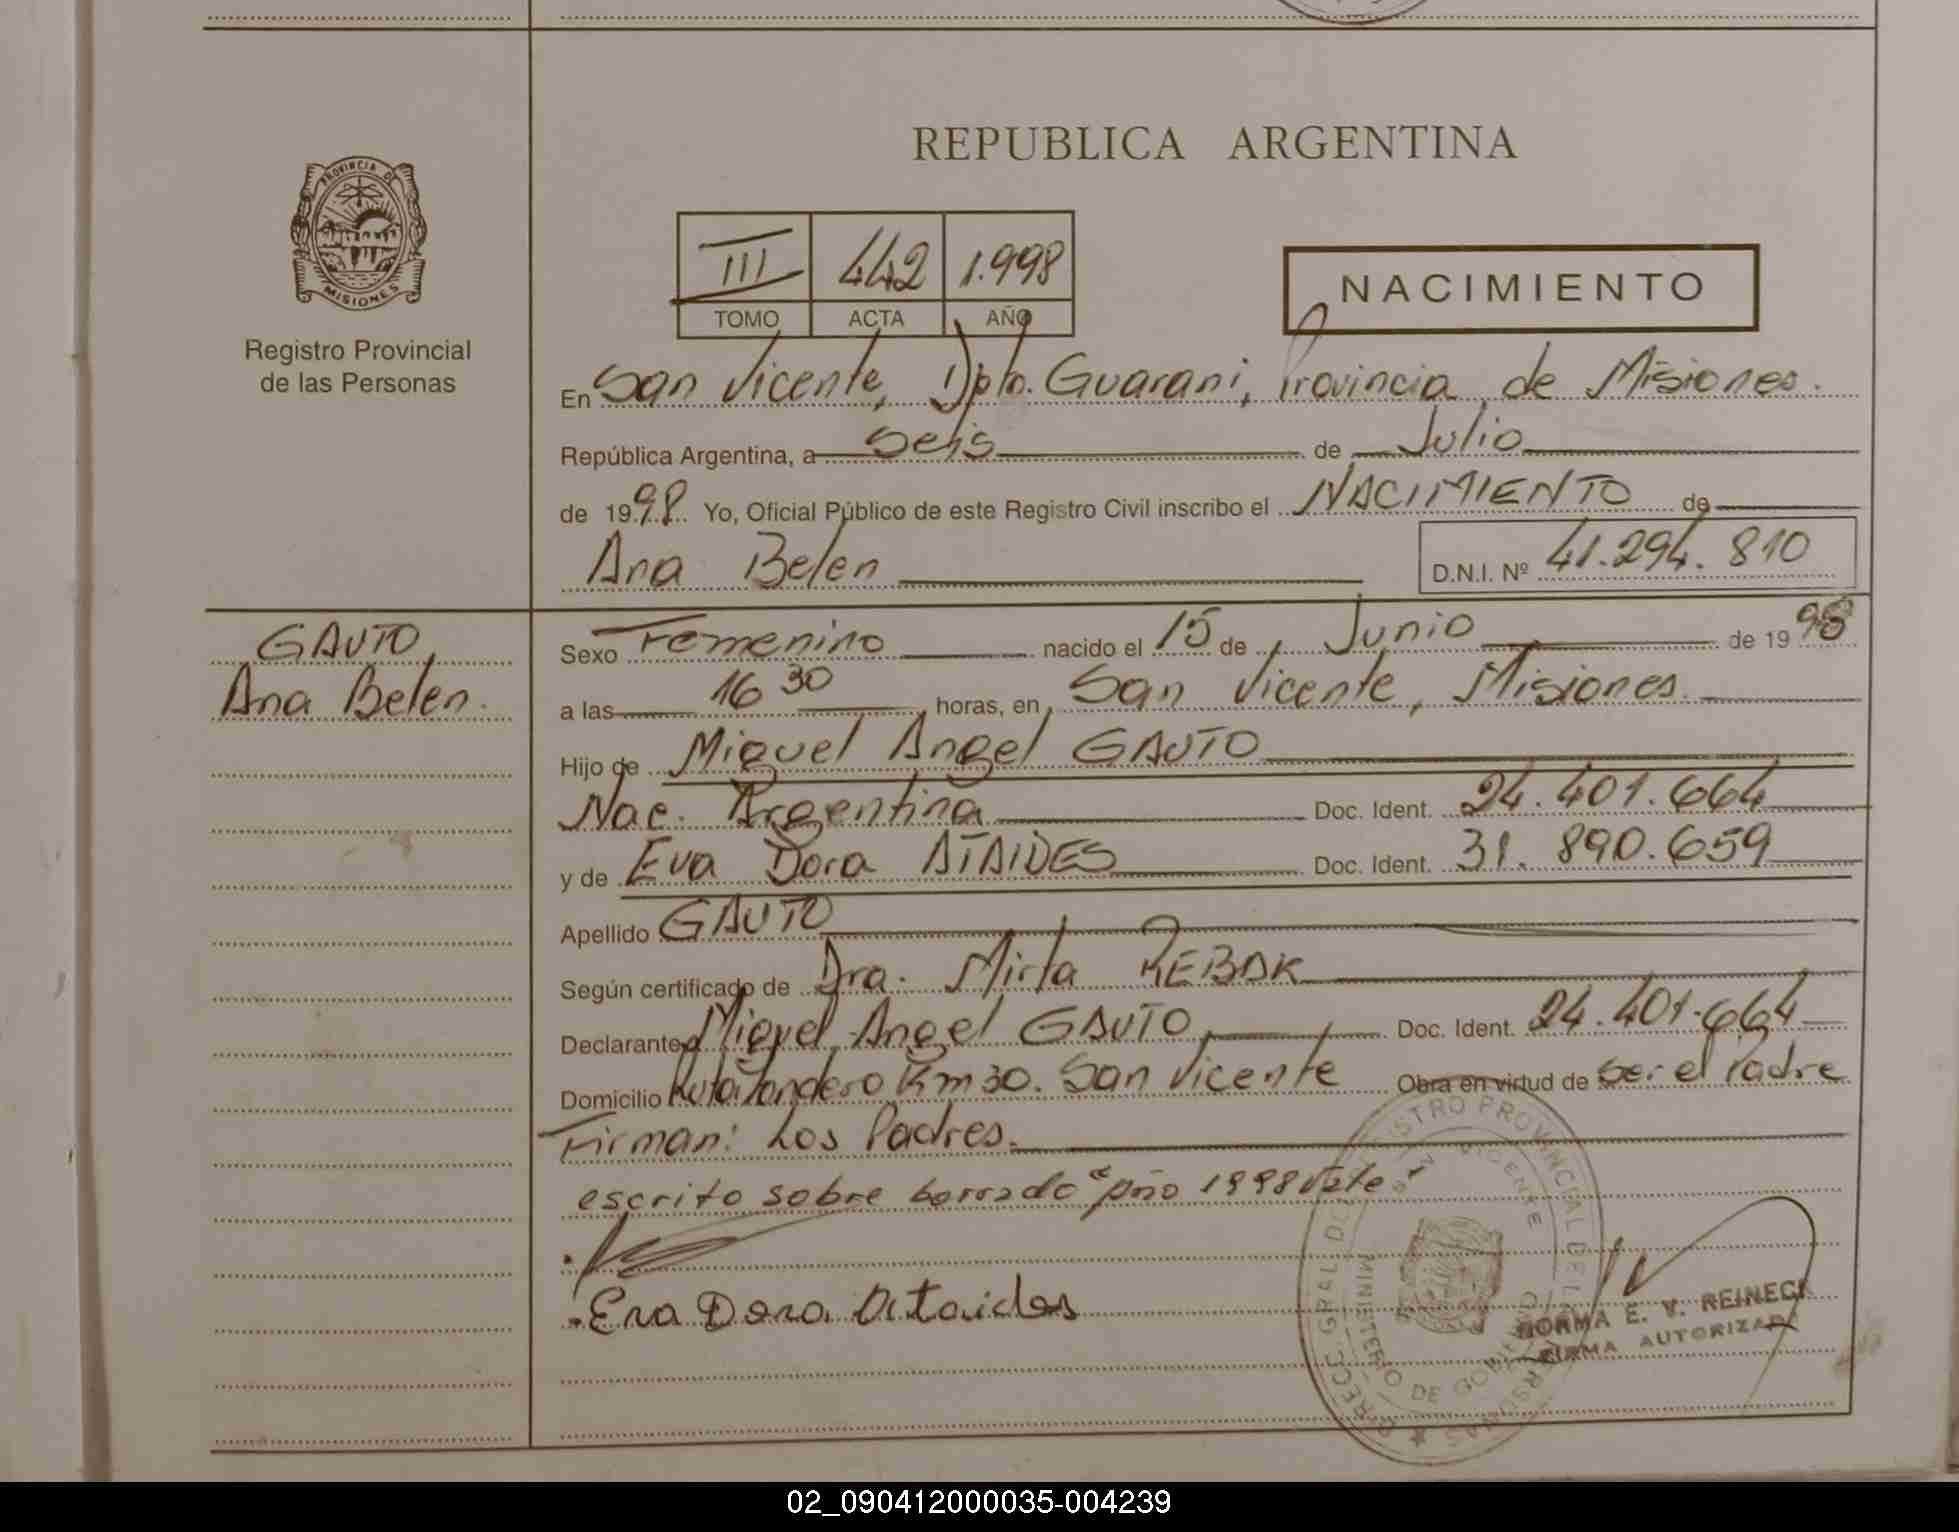 REPUBLICA ARGENTINA
PROVINCIA D
MISIONES
Registro Provincial
de las Personas
III 442 1.998
TOMO ACTA AÑO
NACIMIENTO
En San Vicente, Dpto. Guarani, Provincia de Misiones.
República Argentina, a Seis de Julio
de 1998 Yo, Oficial Público de este Registro Civil inscribo el NACIMIENTO de
Ana Belen D.N.I. Nº 41.294.810
GAUTO
Ana Belen.
Sexo Femenino nacido el 15 de Junio de 1998
a las 16 30 horas, en San Vicente, Misiones.
Hijo de Miguel Angel GAUTO
Nac. Argentina Doc. Ident. 24.401.664
y de Eva Dora ATAIDES Doc. Ident. 31.890.659
Apellido GAUTO
Según certificado de Dra. Mirta REBAK
Declarante Miguel Angel GAUTO Doc. Ident. 24.401.664
Domicilio Km 30. San Vicente Obra en virtud de ser el Padre
Firman: Los Padres.
escrito sobre borrado "año 1998 Vale"
Eva Dora Ataides
DIREC. GRAL. DEL REGISTRO PROVINCIAL DE LAS PERSONAS
SAN VICENTE
MINISTERIO DE GOBIERNO
NORMA E. V. REINECK
FIRMA AUTORIZADA
02_090412000035-004239